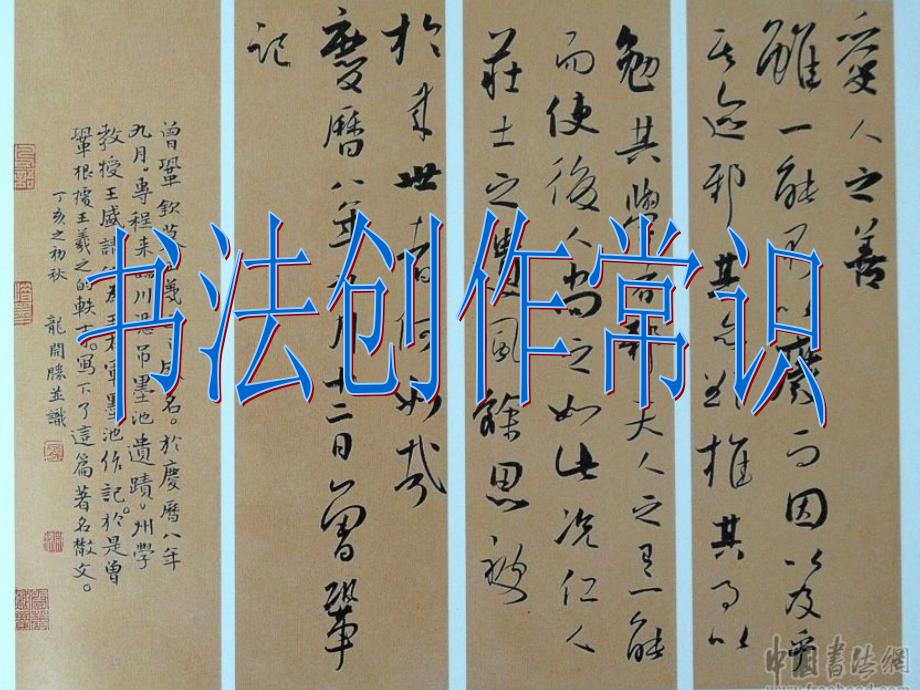 书法创作常识
愛人之善
雖一能不以廢而因以及乎
其迹邪其亦欲推其事以
勉其學者邪夫人之有一能
而使後人尚之如此况仁人
莊士之遺風餘思被
於来世者何如哉
慶曆八年九月十二日曾鞏
記
曾鞏欽慕羲名。於慶曆八年
九月。專程来臨川憑吊墨池遺蹟。州學
教授王盛請他為王右軍墨池作記。於是曾
鞏根據王羲之的軼事。寫下了這篇著名散文。
丁亥之初秋 龍開勝並識
中国書法網